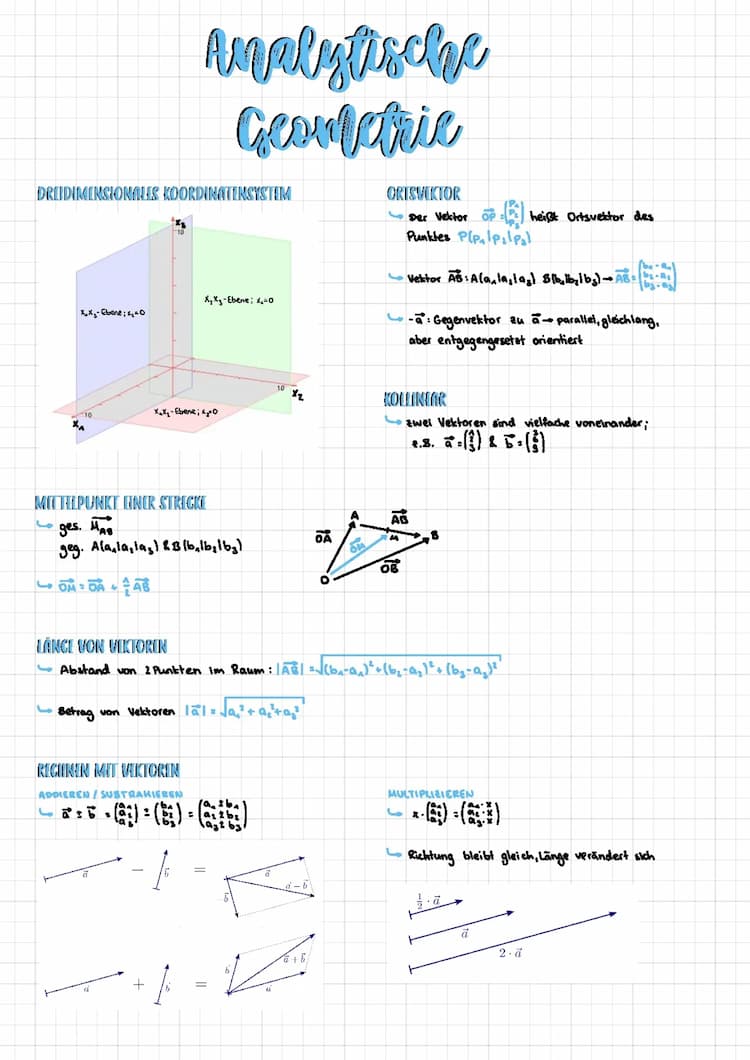 Analytische
Geometrie
DREIDIMENSIONALES KOORDINATENSYSTEM
x₃
10
x₁x₃-Ebene; x₂=0
x₂x₃-Ebene; x₁=0
10
x₂
x₁x₂-Ebene; x₃=0
10
x₁
ORTSVEKTOR
↳ Der Vektor \vec{OP} = (p₁ p₂ p₃) heißt Ortsvektor des
Punktes P(p₁|p₂|p₃)
↳ Vektor \vec{AB}: A(a₁|a₂|a₃) B(b₁|b₂|b₃) → \vec{AB} = (b₁-a₁ b₂-a₂ b₃-a₃)
↳ -\vec{a}: Gegenvektor zu \vec{a} → parallel, gleichlang,
aber entgegengesetzt orientiert
KOLLINEAR
↳ zwei Vektoren sind vielfache voneinander;
z.B. \vec{a} = & \vec{b} =
MITTELPUNKT EINER STRECKE
↳ ges. \vec{M_{AB}}
geg. A(a₁|a₂|a₃) & B(b₁|b₂|b₃)
↳ \vec{OM} = \vec{OA} + 1/2 \vec{AB}
A
\vec{AB}
\vec{OA}
\vec{OM}
M
B
\vec{OB}
O
LÄNGE VON VEKTOREN
↳ Abstand von 2 Punkten im Raum: |\vec{AB}| = √((b₁-a₁)² + (b₂-a₂)² + (b₃-a₃)²)
↳ Betrag von Vektoren |\vec{a}| = √(a₁² + a₂² + a₃²)
RECHNEN MIT VEKTOREN
ADDIEREN / SUBTRAHIEREN
↳ \vec{a} ± \vec{b} = (a₁ a₂ a₃) ± (b₁ b₂ b₃) = (a₁±b₁ a₂±b₂ a₃±b₃)
\vec{a} − \vec{b} = \vec{a} \vec{a}−\vec{b} -\vec{b}
\vec{a} + \vec{b} = \vec{b} \vec{a}+\vec{b} \vec{a}
MULTIPLIZIEREN
↳ x · (a₁ a₂ a₃) = (a₁·x a₂·x a₃·x)
↳ Richtung bleibt gleich, Länge verändert sich
1/2 · \vec{a}
\vec{a}
2 · \vec{a}